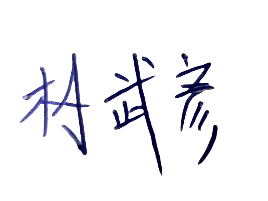 林武彦